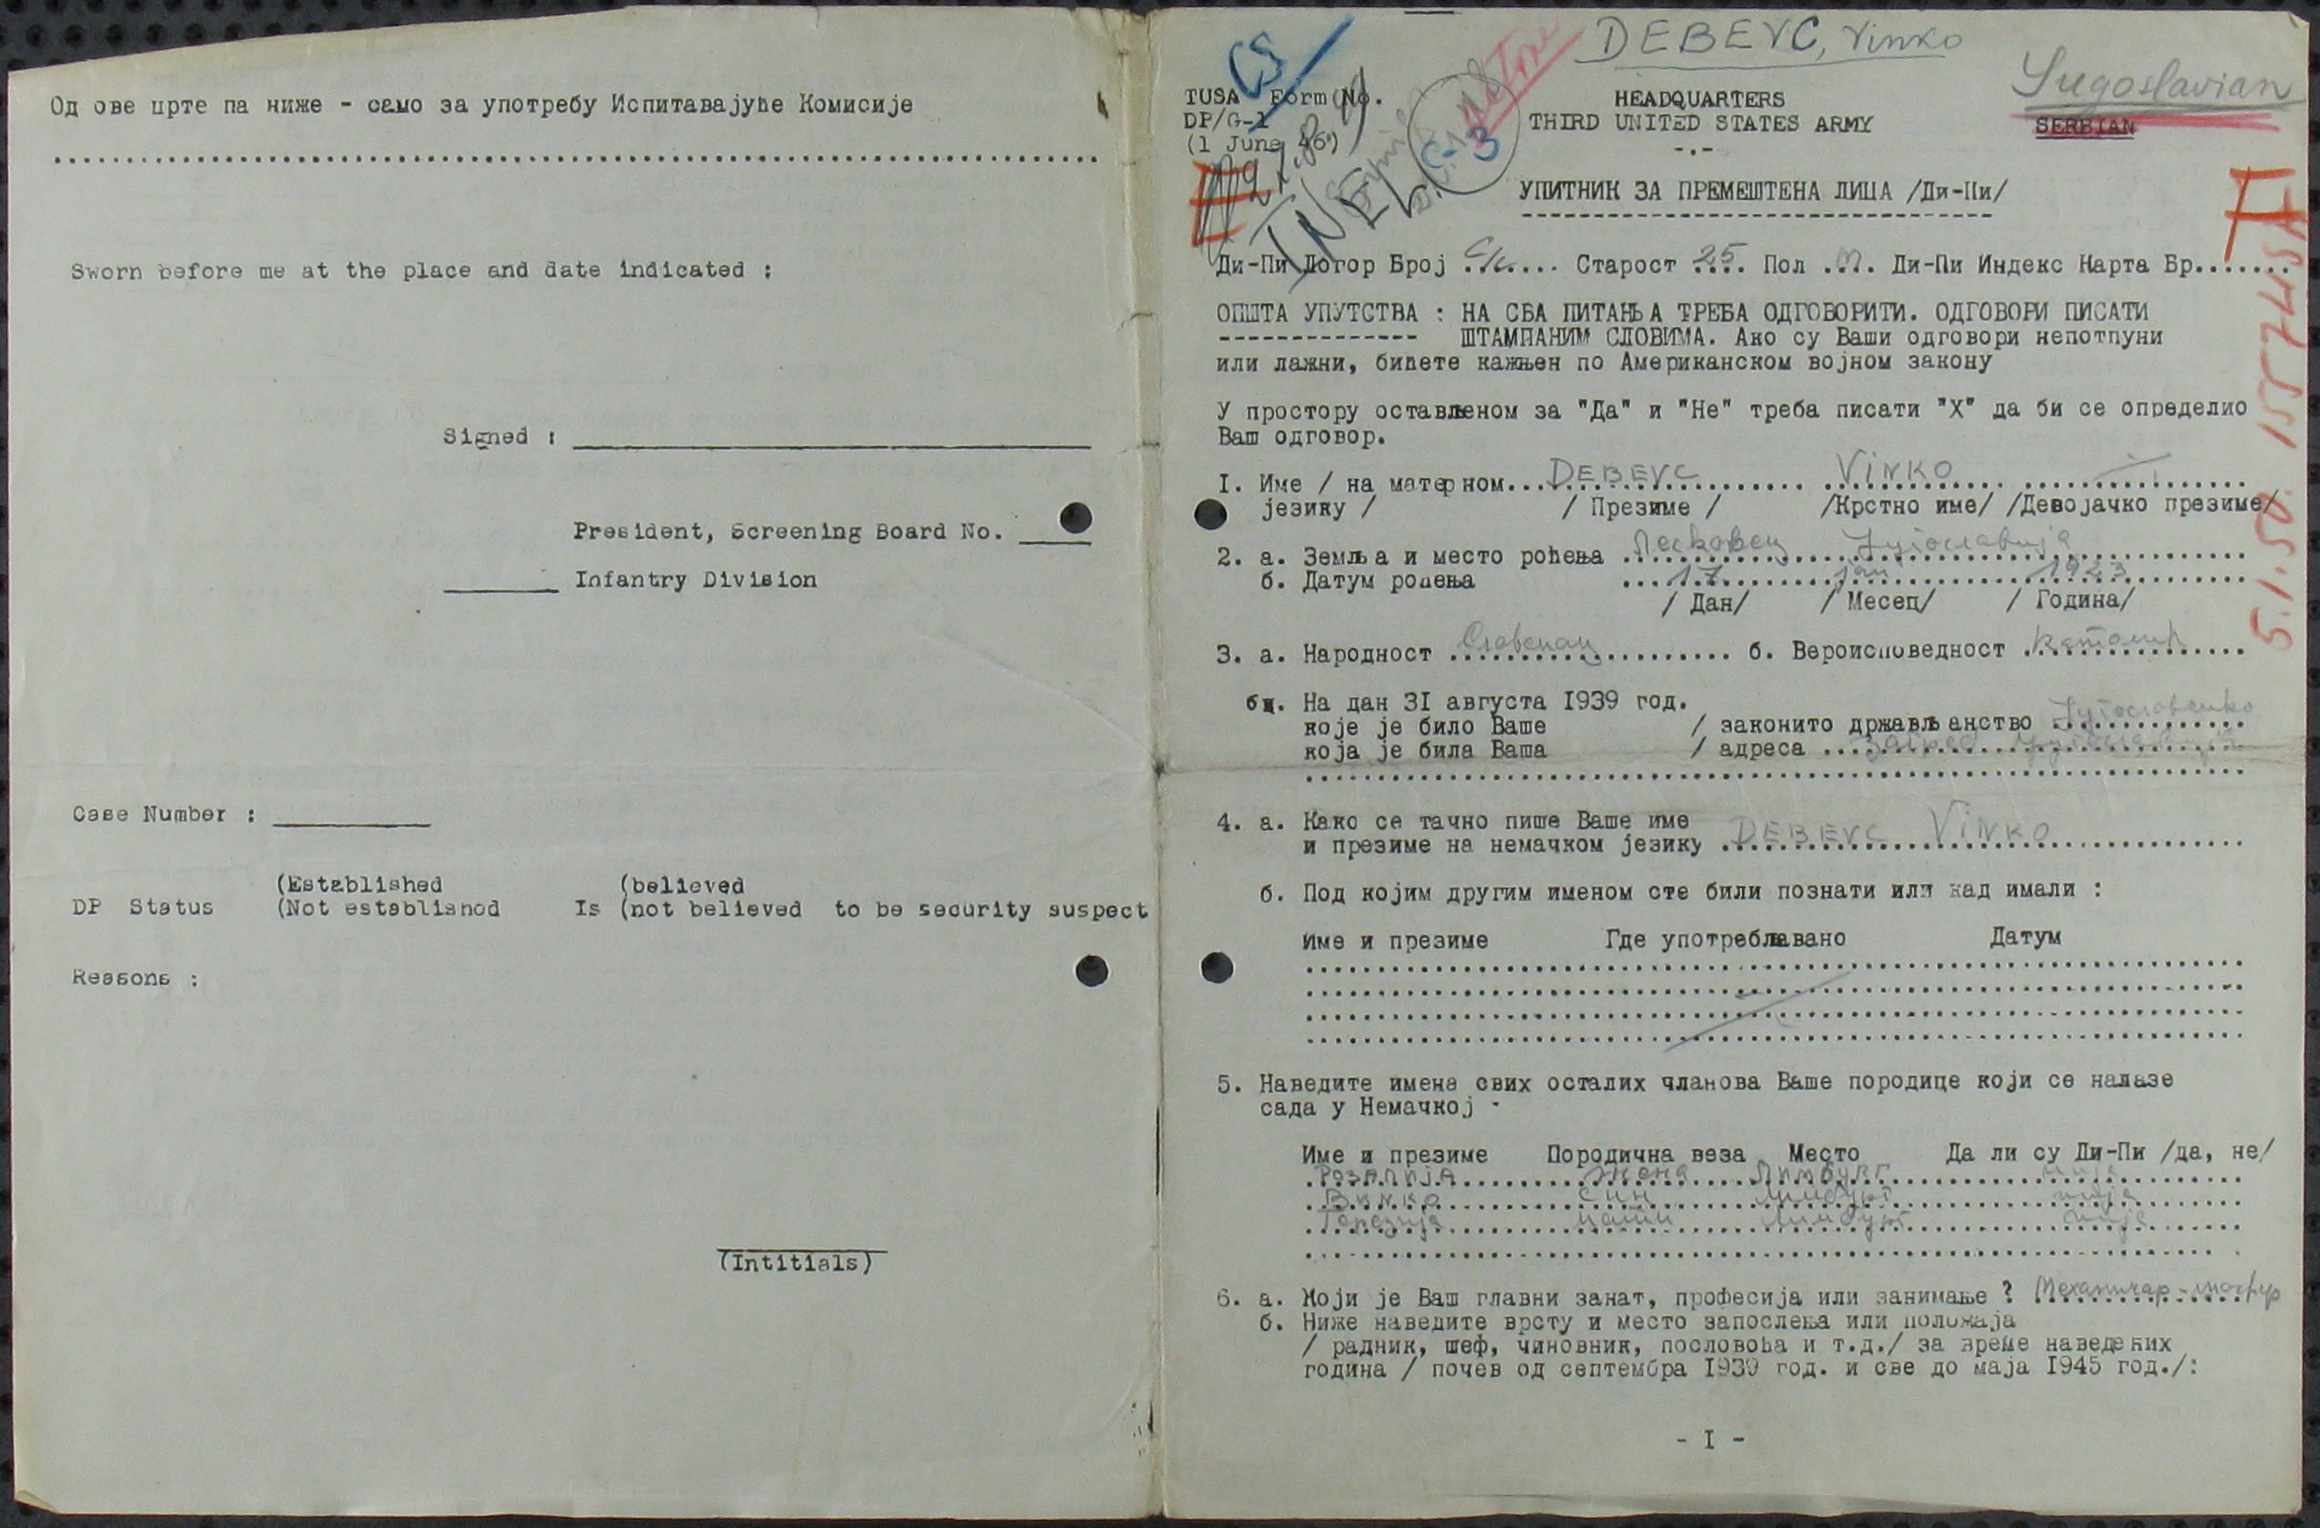 Од ове црте па ниже - само за употребу Испитавајуће Комисије
Sworn before me at the place and date indicated :
Signed :
President, Screening Board No.
Infantry Division
Case Number :
(Established (believed
DP Status (Not established Is (not believed to be security suspect
Reasons :
(Intitials)
DEBEVC, Vinko
CS
Jugoslavian
TUSA Form No. HEADQUARTERS
DP/G-1 THIRD UNITED STATES ARMY SERBIAN
(1 June 46) -.-
C-3
INEL
УПИТНИК ЗА ПРЕМЕШТЕНА ЛИЦА /Ди-Пи/
Ди-Пи Логор Број ....... Старост 25 Пол М. Ди-Пи Индекс Карта Бр.......
ОПШТА УПУТСТВА : НА СВА ПИТАЊА ТРЕБА ОДГОВОРИТИ. ОДГОВОРИ ПИСАТИ
ШТАМПАНИМ СЛОВИМА. Ако су Ваши одговори непотпуни
или лажни, бићете кажњен по Американском војном закону
У простору остављеном за "Да" и "Не" треба писати "X" да би се определио
Ваш одговор.
I. Име / на матерном DEBEVC VINKO
језику / / Презиме / /Крстно име/ /Девојачко презиме/
2. а. Земља и место рођења Лесковец Југославија
б. Датум рођења 17 јан 1923
/ Дан/ / Месец/ / Година/
3. а. Народност Словенац б. Вероисповедност католик
бц. На дан 31 августа 1939 год.
које је било Ваше / законито држављанство Југословенско
која је била Ваша / адреса Загреб Југославија
4. а. Како се тачно пише Ваше име
и презиме на немачком језику DEBEVC VINKO
б. Под којим другим именом сте били познати или кад имали :
Име и презиме Где употребљавано Датум
5. Наведите имена свих осталих чланова Ваше породице који се налазе
сада у Немачкој -
Име и презиме Породична веза Место Да ли су Ди-Пи /да, не/
РОЗАЛИЈА жена Лимбург није
Винко син Лимбург није
Терезија Лимбург није
6. а. Који је Ваш главни занат, професија или занимање ? Механичар-шофер
б. Ниже наведите врсту и место запослења или положаја
/ радник, шеф, чиновник, пословођа и т.д./ за време наведених
година / почев од септембра 1939 год. и све до маја 1945 год./:
- I -